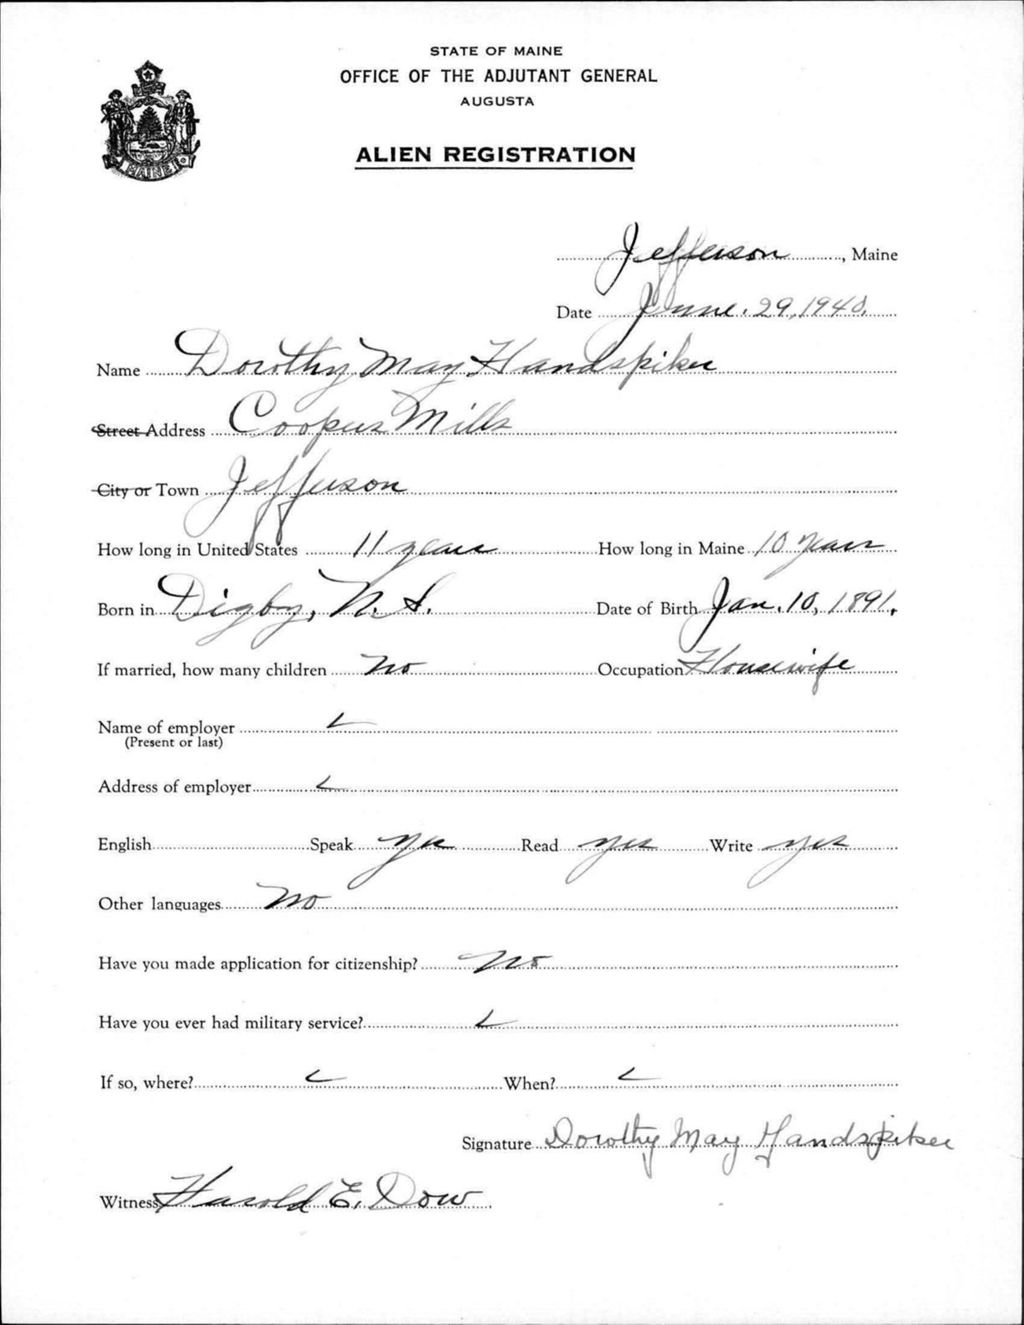 STATE OF MAINE
OFFICE OF THE ADJUTANT GENERAL
AUGUSTA
ALIEN REGISTRATION
MAINE
Jefferson, Maine
Date June. 29, 1940.
Name Dorothy May Handspiker
Street Address Coopers Mills
City or Town Jefferson
How long in United States 11 years How long in Maine 10 years
Born in Digby, N. S. Date of Birth Jan. 10, 1891.
If married, how many children No Occupation Housewife
Name of employer
(Present or last)
Address of employer
English Speak yes Read yes Write yes
Other languages No
Have you made application for citizenship? No
Have you ever had military service?
If so, where? When?
Signature Dorothy May Handspiker
Witness Harold E. Dow